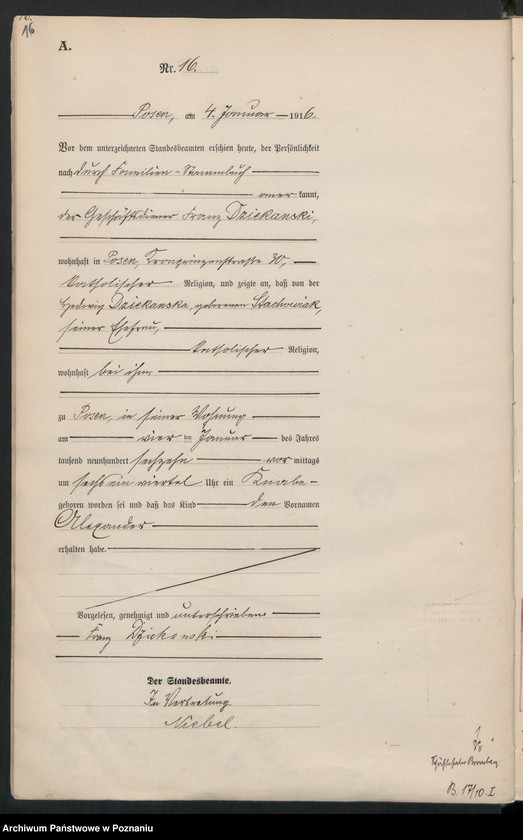 16
A.
Nr. 16.
Posen, am 4. Januar 1916.
Vor dem unterzeichneten Standesbeamten erschien heute, der Persönlichkeit
nach durch Familien-Stammbuch
aner kannt,
der Geschäftsdiener Franz Dziekanski,
wohnhaft in Posen, Kronprinzenstraße
katholischer Religion, und zeigte an, daß von der
Hedwig Dziekanska, geborenen Stachowiak,
seiner Ehefrau,
katholischer Religion,
wohnhaft bei ihm
zu Posen, in seiner Wohnung
am vier ten Januar des Jahres
tausend neunhundert sechzehn vor mittags
um sechs ein viertel Uhr ein Knabe
geboren worden sei und daß das Kind den Vornamen
Alexander
erhalten habe.
Vorgelesen, genehmigt und unterschrieben
Franz Dziekanski
Der Standesbeamte.
In Vertretung.
Niebel.
B. 17/10. I
Archiwum Państwowe w Poznaniu